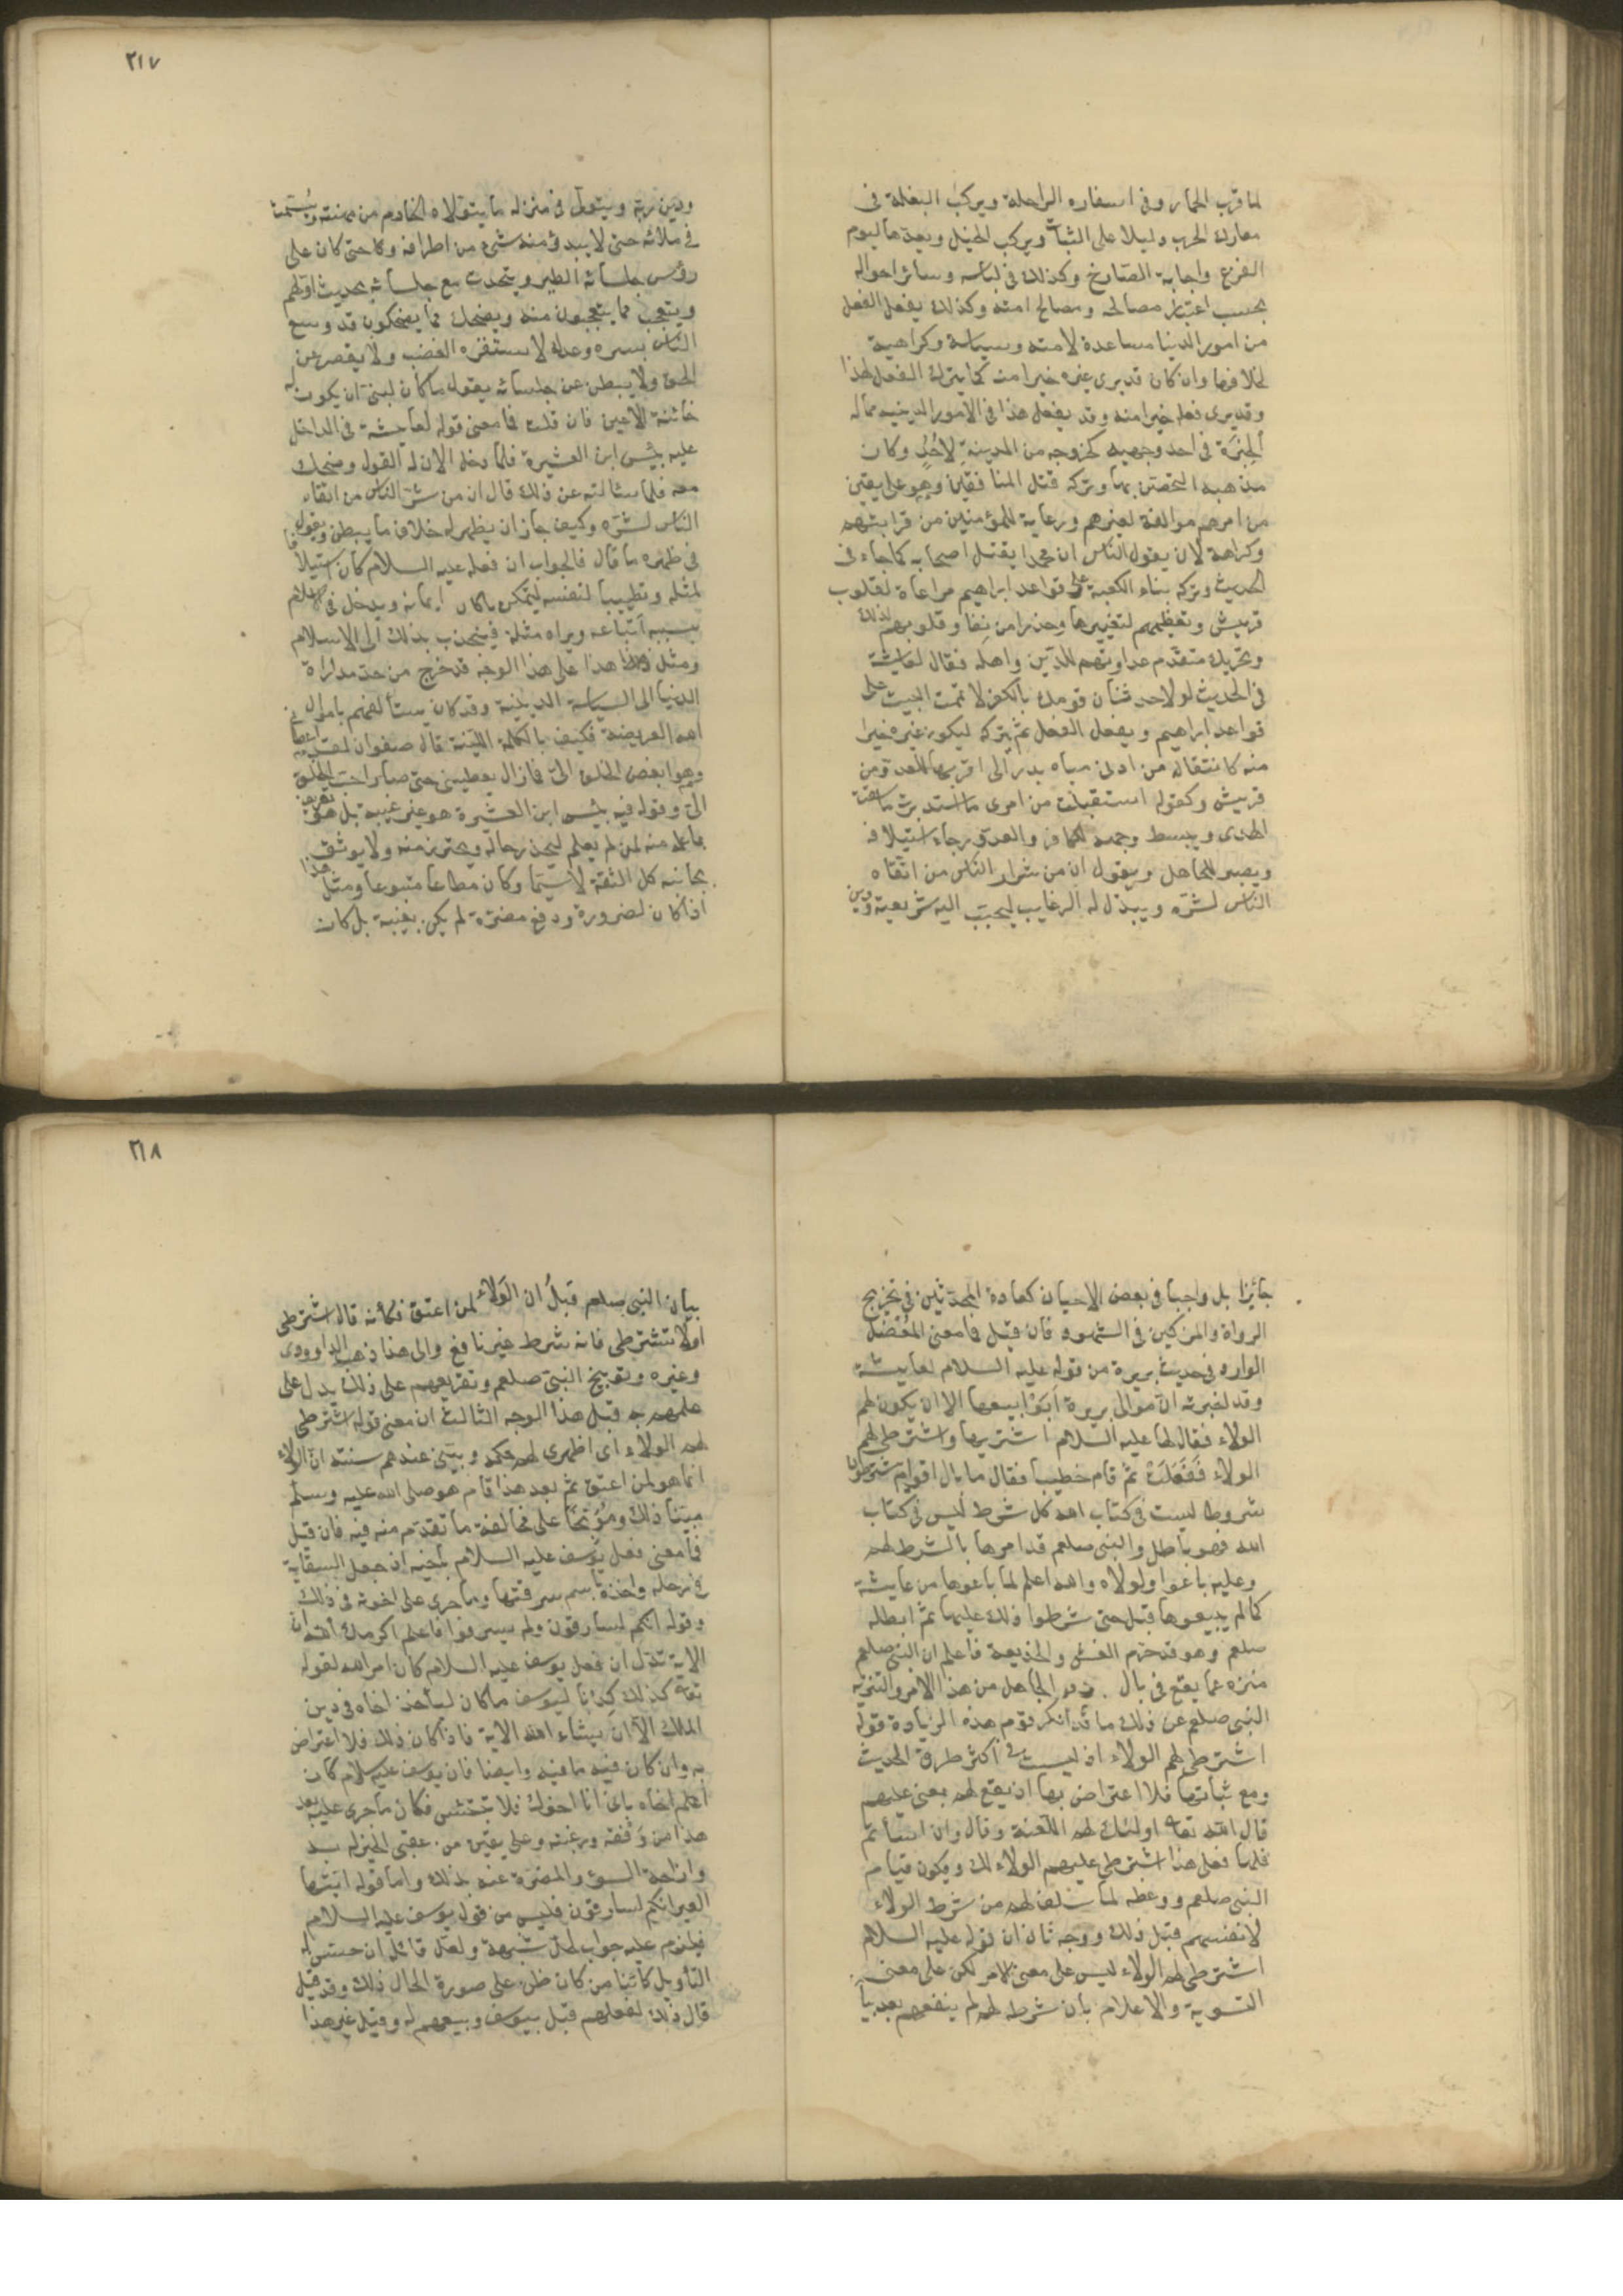 لما قرب الحمار وفى اسفاره الراحلة ويركب البغلة فى
معارك الحرب دليلا على الثبات ويركب الخيل ويعدها ليوم
الفزع واجابة الصارخ وكذلك فى لباسه وسائر احواله
بحسب اعتبار مصالحه ومصالح امته وكذلك يفعل الفعل
من امور الدنيا مساعدة لامته وسياسة وكراهية
لخلافها وان كان قد يرى غيره خيرا منه كما يترك الفعل لهذا
وقد يرى فعله خيرا منه وقد يفعل هذا فى الامور الدينيه مما له
الخِيَرَة فى احد وجهيه كخروجه من المدينةِ لِاُحُدٍ وكان
مذهبه التحصن بها وتركه قتل المنافقين وهو على يقين
من امرهم موالفة لغيرهم ورعاية للمؤمنين من قرابتهم
وكراهة لان يقول الناس ان محمدا يقتل اصحابه كما جاء فى
الحديث وتركه بناء الكعبة على قواعد ابراهيم مراعاة لقلوب
قريش وتعظيمهم لتغييرها وحذرا من نفار قلوبهم لذلك
وتحريك متقدم عداوتهم للدين واهله فقال لعايشة
فى الحديث لولا حدثان قومك بالكفر لاتممت البيت على
قواعد ابراهيم ويفعل الفعل ثم يتركه ليكون غيره خيرا
منه كانتقاله من ادنى مياه بدر الى اقربها للعدو من
قريش وكقوله استقبلت من امرى ما استدبرت ما سقت
الهدى ويبسط وجهه للكافر والعدو رجاء استيلافه
ويصبر للجاهل ويقول ان من شرار الناس من اتقاه
الناس لشره ويبذل له الرغايب ليحبب اليه شريعته ودين
٢١٧
ودين ربه ويتولى فى منزله ما يتولاه الخادم من مهنته ويتسمت
فى ملائه حتى لا يبدو منه شىء من اطرافه وكا حتى كان على
رؤس جلسائه الطير ويتحدث مع جلسائه بحديث اولهم
ويتعجب مما يتعجبون منه ويضحك مما يضحكون قد وسع
الناس بسره وعدله لا يستفزه الغضب ولا يقصر عن
الحق ولا يبطن عن جلسائه يقول ما كان لبنى ان يكون له
خائنة الاعين فان قلت فما معنى قوله لعايشة فى الداخل
عليه بئس ابن العشيرة فلما دخل الان له القول وضحك
معه فلما سالته عن ذلك قال ان من شر الناس من اتقاه
الناس لشره وكيف جاز ان يظهر له خلاف ما يبطن ويقول
فى ظهره ما قال فالجواب ان فعله عليه السلام كان استيلافا
لمثله وتطييبا لنفسه ليتمكن باكان ايمانه ويدخل فى الاسلام
بسببه اتباعه ويراه مثله فينجذب بذلك الى الاسلام
ومثل هذا على هذا الوجه قد خرج من حد مداراة
الدنيا الى السياسة الدينية وقد كان يستألفهم باموال
الله العريضة فكيف بالكلمة اللينة قال صفوان لقد اعطانى
وهو ابغض الخلق الىّ فما زال يعطينى حتى صار احب الخلق
الىّ وقوله فيه بئس ابن العشيرة هو غير غيبة بل هو تعريف
ما علمه منه لمن لم يعلم ليحذر حاله ويحترز منه ولا يوثق
بجانبه كل الثقة لا سيما وكان مطاعا متبوعا ومثل هذا
اذا كان لضرورة ودفع مضرة لم يكن بغيبة بل كان
جائزا بل واجبا فى بعض الاحيان كعادة المحدثين فى تجريح
الرواة والمزكين فى الشهود فان قيل فما معنى المُعْضل
الوارد فى حديث بريرة من قوله عليه السلام لعايشة
وقد اخبرته ان موالى بريرة اَبَوْا بيعها الا ان يكون لهم
الولاء فقال لها عليه السلام اشتريها واشترطى لهم
الولاء فَفَعَلَتْ ثم قام خطيبا فقال ما بال اقوام يشترطون
شروطا ليست فى كتاب الله كل شرط ليس فى كتاب
الله فهو باطل والنبى صلعم قد امرها بالشرط لهم
وعليه باعوا ولولاه والله اعلم لما باعوها من عايشة
كما لم يبيعوها قبل حتى شرطوا ذلك عليها ثم ابطله
صلعم وهو قد حرم الغش والخديعة فاعلم ان النبى صلعم
منزه عما يقع فى بال الجاهل من هذا الامر والتنزيه
النبى صلعم عن ذلك ما قد انكر قوم هذه الزيادة قوله
اشترطى لهم الولاء اذ ليست فى اكثر طرق الحديث
ومع ثباتها فلا اعتراض بها ان يقع لهم بمعنى عليهم
قال الله تعا اولئك لهم اللعنة وقال وان اسأتم
فلها فعلى هذا اشترطى عليهم الولاء لك ويكون قيام
النبى صلعم ووعظه لما سلف لهم من شرط الولاء
لانفسهم قبل ذلك ووجه ثان ان قوله عليه السلام
اشترطى لهم الولاء ليس على معنى الامر لكن على معنى
التسوية والاعلام بان شرطه لهم لم ينفعهم بعد بيا
٢١٨
بيان النبى صلعم قبلُ ان الوَلاء لمن اعتق فكأنه قال اشترطى
اولا تشترطى فانه شرط غير نافع والى هذا ذهب الداوودى
وغيره وتوبيخ النبى صلعم وتقريعهم على ذلك يدل على
علمهم به قبل هذا الوجه الثالث ان معنى قوله اشترطى
لهم الولاء اى اظهرى لهم حكمه وبينى عندهم سنته ان الولاء
انما هو لمن اعتق ثم بعد هذا قام هو صلى الله عليه وسلم
مبينا ذلك ومُوَبّخًا على مخالفة ما تقدم منه فيه فان قيل
فما معنى فعل يوسف عليه السلام باخيه ان جعل السقاية
فى رحله واخذه باسم سرقتها وما جرى على اخوته فى ذلك
وقوله انكم لسارقون ولم يسرقوا فاعلم اكرمك الله ان
الاية تدل ان فعل يوسف عليه السلام كان امر الله لقوله
تعا كذلك كدنا ليوسف ما كان ليأخذ اخاه فى دين
الملك الا ان يشاء الله الاية فاذا كان ذلك فلا اعتراض
به وان كان فيه ما فيه وايضا فان يوسف عليه سلام كان
اعلم اخاه بانى انا اخوك فلا تبتئس فكان ما جرى عليه بعد
هذا من وَفْقه ورغبته وعلى يقين من عقبى الخير له به
وازاحة السوء والمضرة عنه بذلك واما قوله ايتها
العير انكم لسارقون فليس من قول يوسف عليه السلام
فيلزم عليه جواب لحل شبهة ولعل قائله ان حسن له
التأويل كائنا من كان ظن على صورة الحال ذلك وقد قيل
قال ذلك لفعلهم قبل بيوسف وبيعهم له وقيل غير هذا